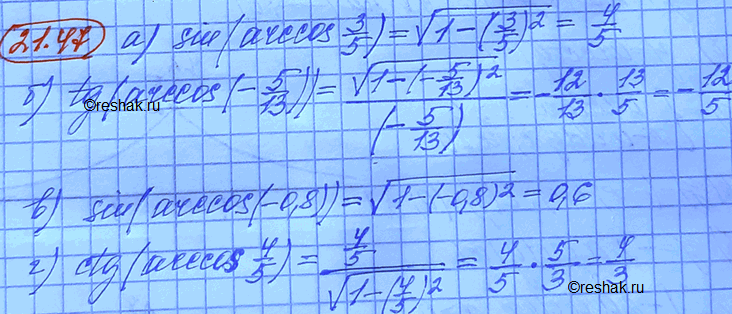 21.47 а) sin(arccos 3/5) = √(1-(3/5)²) = 4/5
©reshak.ru
б) tg(arccos(-5/13)) = √(1-(-5/13)²)/(-5/13) = -12/13 · 13/5 = -12/5
в) sin(arccos(-0,8)) = √(1-(-0,8)²) = 0,6
г) ctg(arccos 4/5) = (4/5)/√(1-(4/5)²) = 4/5 · 5/3 = 4/3
©reshak.ru